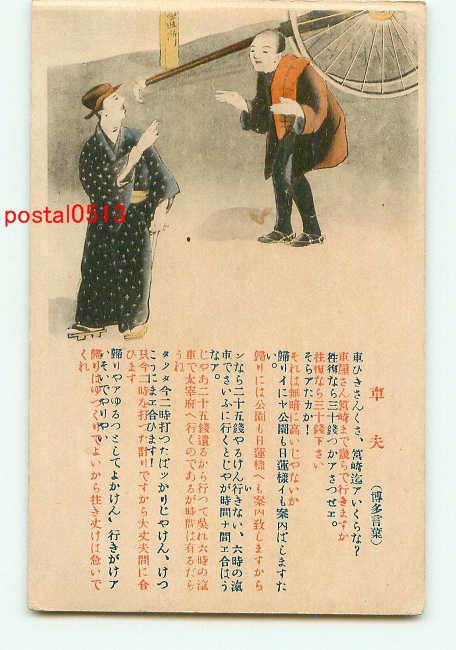 車夫
(博多言葉)
車ひきさんくさ、筥崎迄アいくらな?
車屋さん筥崎まで幾らで行きますか
往復なら三十錢つかアさつせエ。
往復なら三十錢下さい
そらアたカか!
それは無暗に高いじやないか
歸りイにヤ公園も日蓮樣イも案内ばしますたい。
歸りには公園も日蓮樣へも案内致しますから
ンなら二十五錢やるけん行きない、六時の滊車でさいふに行くとじやが時間ナ間エ合はうなア。
じやあ二十五錢遣るから行つて吳れ六時の滊車で太宰府へ行くのであるが時間は有るだらうね
タツタ今二時打つたばツかりじやけん、けつこうにまエ合ひます!
只今二時を打つた計りですから大丈夫間に合ひます
歸りやアゆるつとしてよかけん、行きがけアいそいでやりやい
歸りはゆつくりでよいから往き丈けは急いでくれ
postal0513